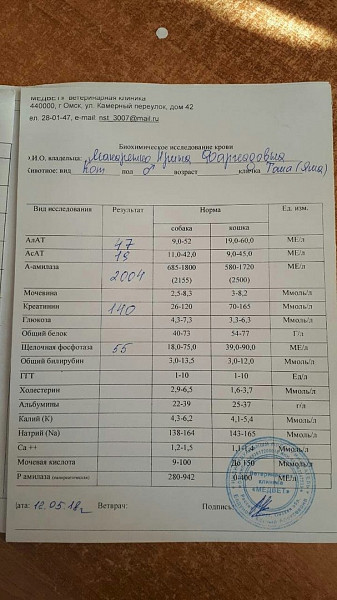 МЕДВЕТ» ветеринарная клиника
440000, г Омск. ул. Камерный переулок, дом 42
ел. 28-01-47, e-mail: nst_3007@mail.ru
Биохимическое исследование крови
Ф.И.О. владельца: Макаренко Ирина
животное: вид Кот пол ♂ возраст кличка Тама (Яма)
Вид исследования Результат Норма Ед. изм.
собака кошка
АлАТ 47 9,0-52 19,0-60,0 МЕ/л
АсАТ 19 11,0-42,0 9,0-45,0 МЕ/л
А-амилаза 2004 685-1800 580-1720 МЕ/л
(2155) (2500)
Мочевина 2,5-8,3 3-8,2 Ммоль/л
Креатинин 140 26-120 70-165 Ммоль/л
Глюкоза 4,3-7,3 3,3-6,3 Ммоль/л
Общий белок 40-73 54-77 Г/л
Щелочная фосфотаза 55 18,0-75,0 39,0-90,0 МЕ/л
Общий билирубин 3,0-13,5 3,0-12,0 Ммоль/л
ГГТ 1-10 1-10 Ед/л
Холестерин 2,9-6,5 1,6-3,7 Ммоль/л
Альбумины 22-39 25-37 г/л
Калий (К) 4,3-6,2 4,1-5,4 Ммоль/л
Натрий (Na) 138-164 143-165 Ммоль/л
Ca ++ 1,2-1,5 Ммоль/л
Мочевая кислота 9-100 До 150 Мкмоль/л
Р амилаза 280-942 0-400 МЕ/л
Ветеринарная клиника «МЕДВЕТ»
Дата: 12.05.18г Ветврач: Подпись: